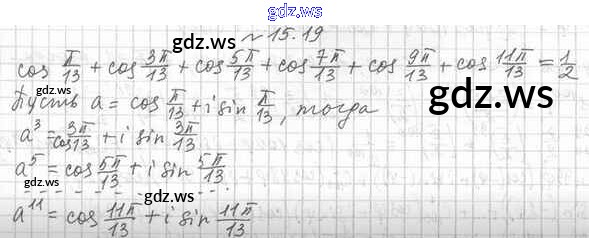 gdz.ws
№ 15.19
cos π/13 + cos 3π/13 + cos 5π/13 + cos 7π/13 + cos 9π/13 + cos 11π/13 = 1/2
gdz.ws
Пусть a = cos π/13 + i sin π/13, тогда
gdz.ws
a³ = cos 3π/13 + i sin 3π/13
a⁵ = cos 5π/13 + i sin 5π/13
gdz.ws
a¹¹ = cos 11π/13 + i sin 11π/13